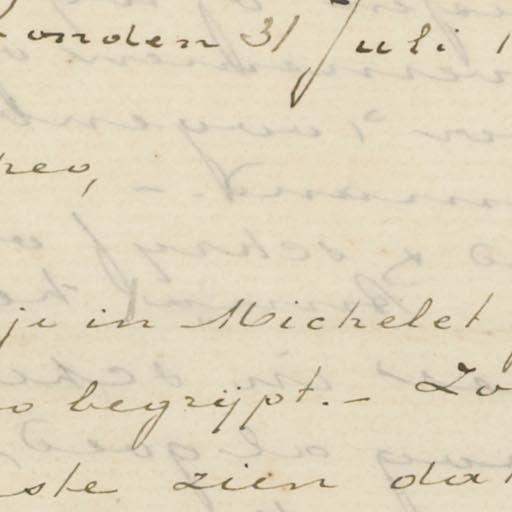 onden 31 Juli 1
heo,
je in Michelet
o begrijpt. – Zo
ste zien dat